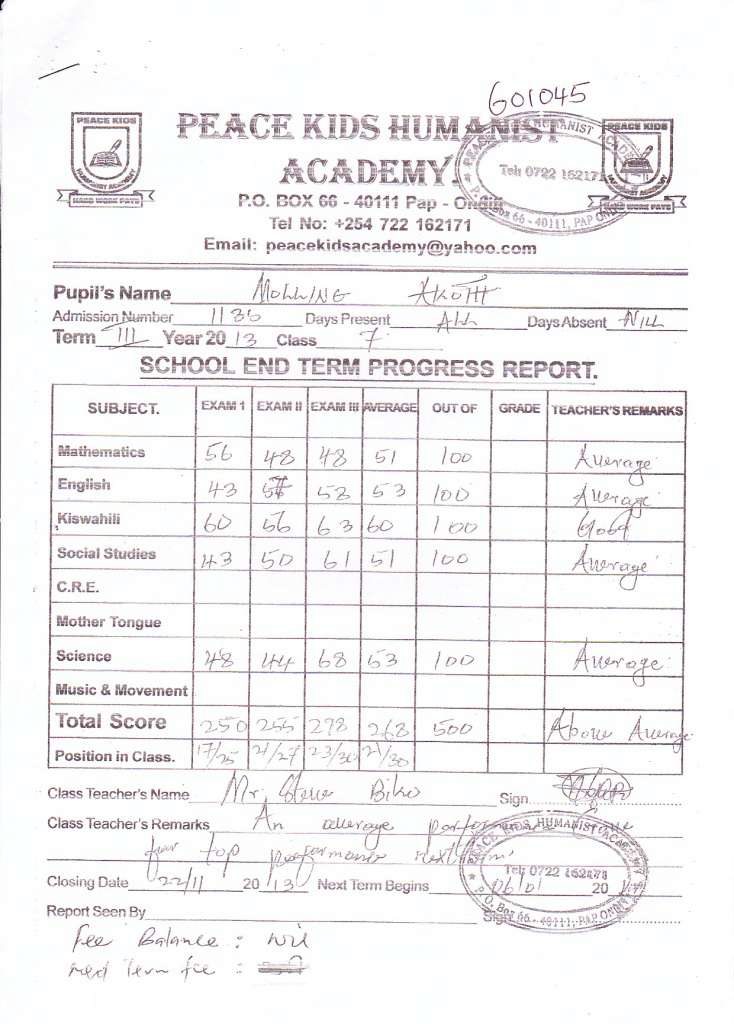 601045
PEACE KIDS
HUMANIST ACADEMY
HARD WORK PAYS
PEACE KIDS HUMANIST
ACADEMY.
P.O. BOX 66 - 40111 Pap - Ongin
Tel No: +254 722 162171
Email: peacekidsacademy@yahoo.com
PEACE KIDS HUMANIST ACADEMY
Tel: 0722 162171
P.O. Box 66 - 40111, PAP ONGIN
PEACE KIDS
HUMANIST ACADEMY
HARD WORK PAYS
Pupil's Name MOLLINE AKOTH
Admission Number 1136 Days Present ALL Days Absent NILL
Term III Year 2013 Class 7
SCHOOL END TERM PROGRESS REPORT.
SUBJECT. EXAM 1 EXAM II EXAM III AVERAGE OUT OF GRADE TEACHER'S REMARKS
Mathematics 56 48 48 51 100 Average
English 43 58 53 100 Average
Kiswahili 60 56 63 60 100 Good
Social Studies 43 50 61 51 100 Average
C.R.E.
Mother Tongue
Science 48 44 68 53 100 Average
Music & Movement
Total Score 250 255 298 268 500 Above Average
Position in Class. 17/25 21/27 23/30 21/30
Class Teacher's Name Mr. Steve Biko Sign
Class Teacher's Remarks An average performance
for top performance next term
Closing Date 22/11 2013 Next Term Begins 06/01 20
PEACE KIDS HUMANIST ACADEMY
Tel: 0722 162171
P.O. Box 66 - 40111, PAP ONGIN
Report Seen By Sign
Fee Balance : Nil
Next Term fee :